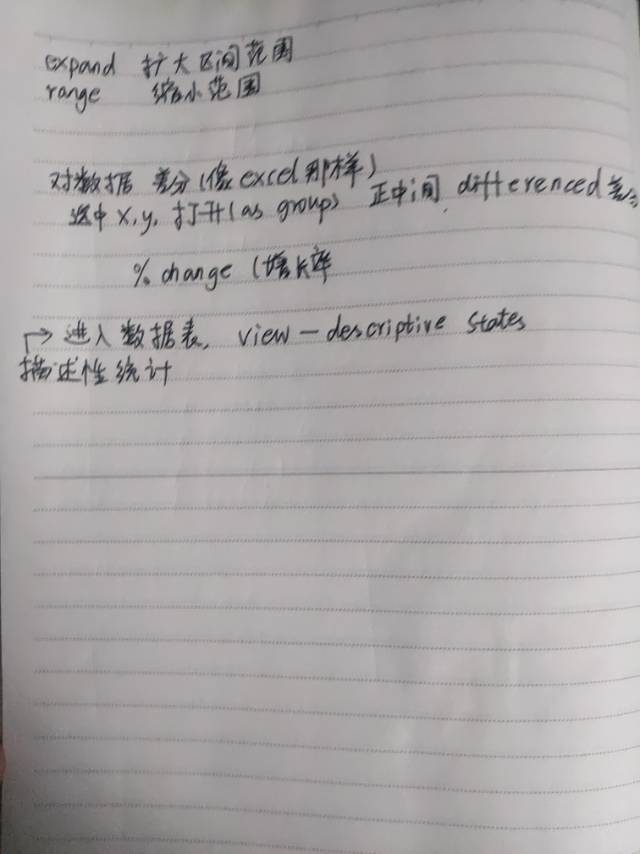 expand 扩大区间范围
range 缩小范围
对数据 差分(像excel那样)
选中x,y,打开(as group) 正中间 differenced差分
% change (增长率
→进入数据表, view-descriptive states
描述性统计